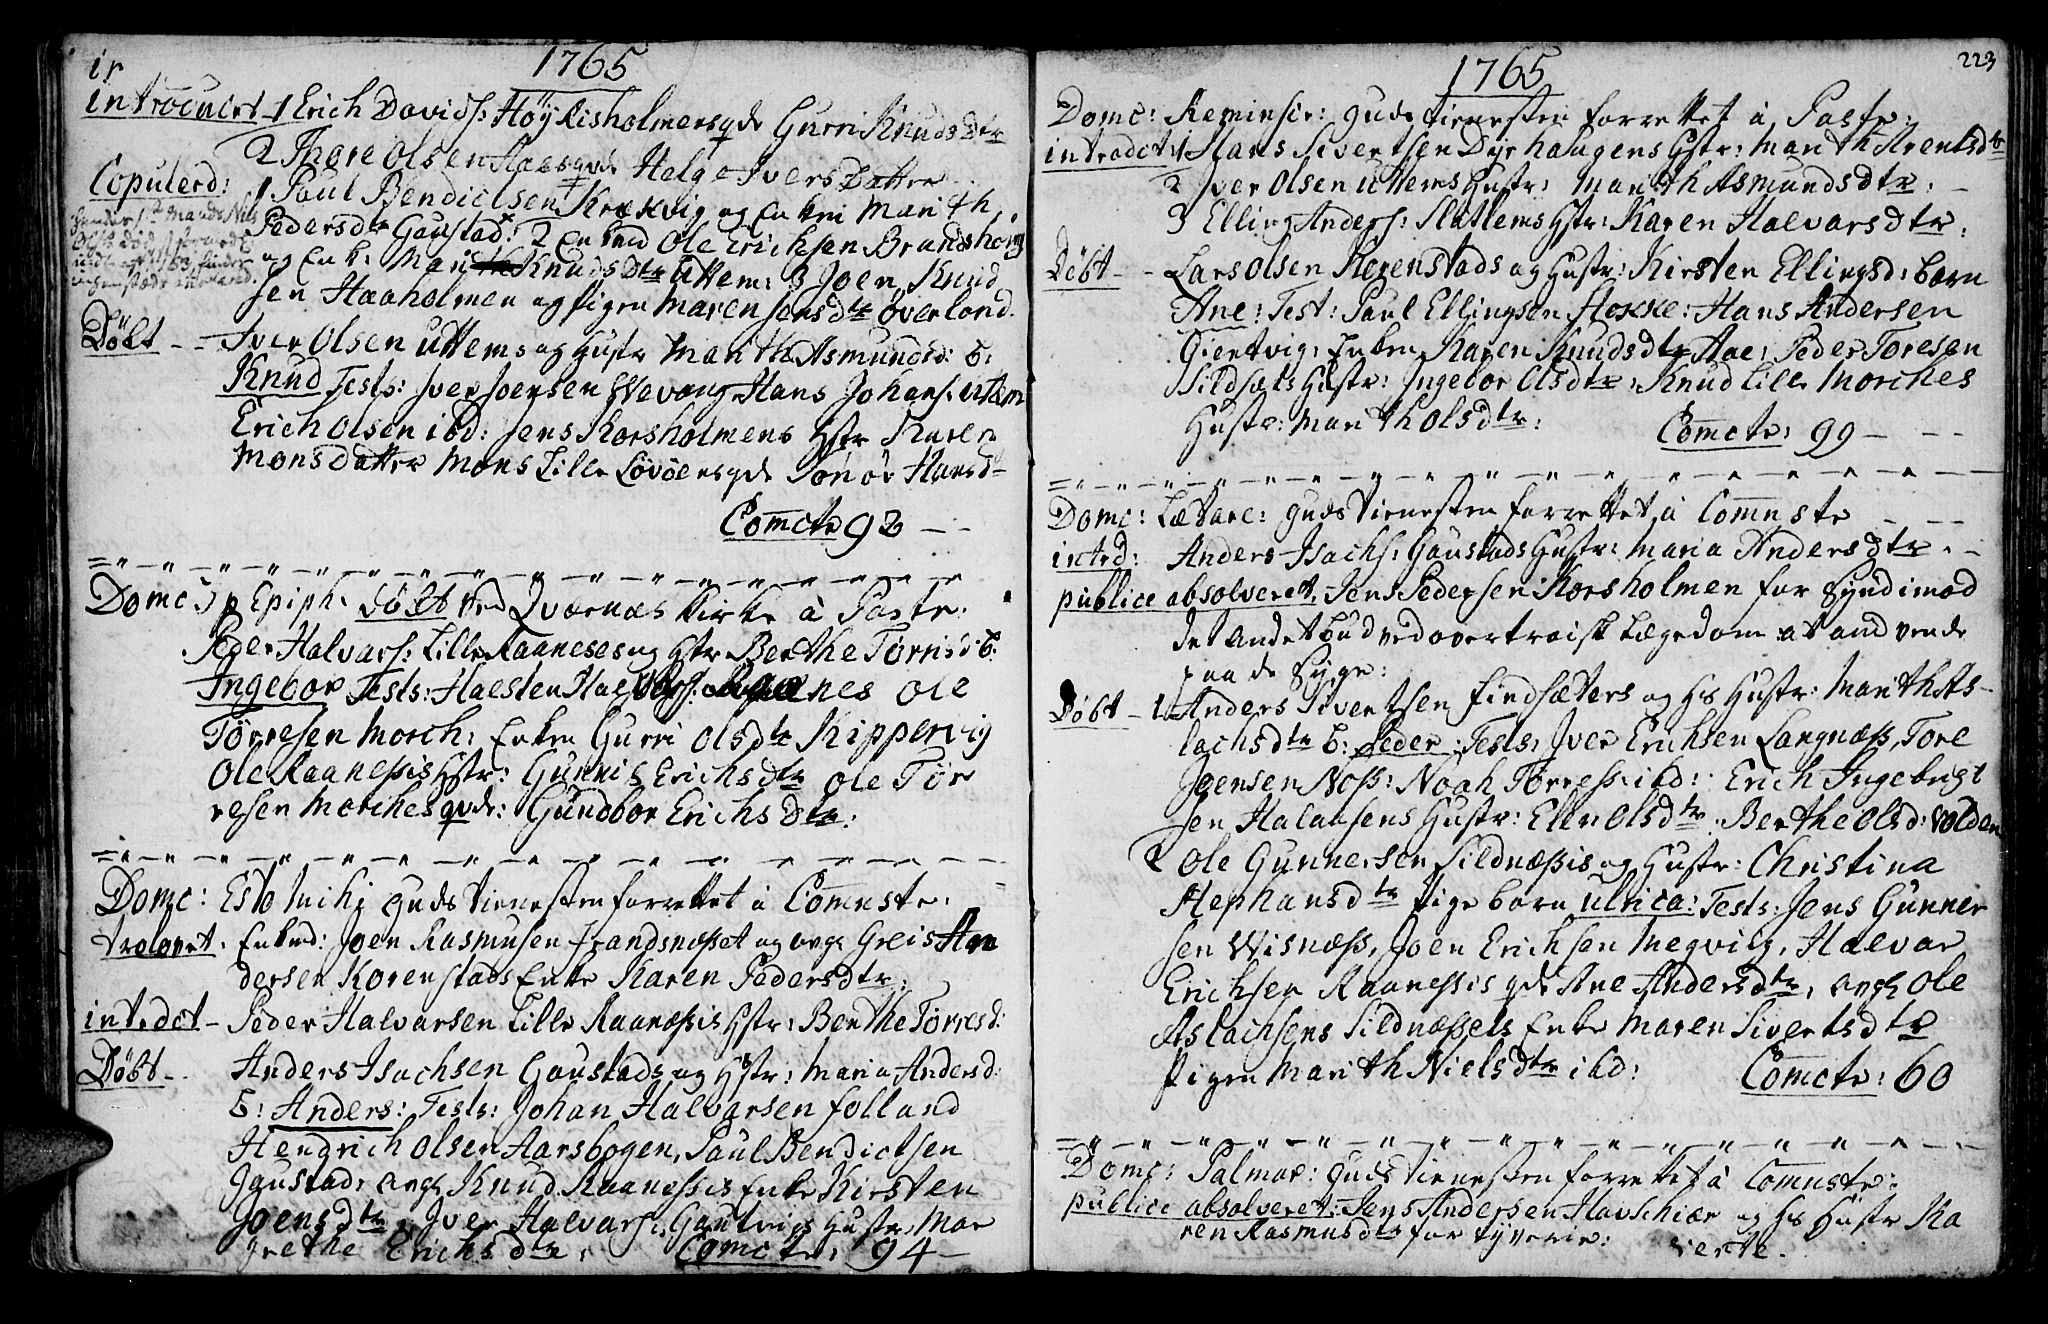 1765
introducert 1 Erich Davids: Höÿlisholmens qde Gurri Knuds Dtr
2 Thore Olsen Haes qde Helge Ivers Datter
Copulerd: 1 Paul Bendictsen Krækvig og Enken Marith
Pedersdtr Gaustad: 2 Enkmd Ole Erichsen Brandshoug
og Enk: Marith Knudsdtr Uttem: 3 Joen Knud
sen Haaholmen og Pigen Maren Jensdtr Överland.
Döbt - - Iver Olsen Uttems og Hustr Marith Asmundsd: b:
Knud Tests: Iver Joensen Hans Johans: Uttem
Erich Olsen ibd: Jens Korsholmens Hstr Karen
Monsdatter Mons Lille Lövöens qde Hansd-
Comcte 93 - -
Domc: 5 p Epiph. Döbt ved Qværnæs Kirke à Pastr.
Peder Halvars: Lille Raaneses og Hstr Berthe Törrisd b:
Ingebor Tests: Halsten Ole
Törresen Morch: Enken Gurri Olsdtr Kippervig
Ole Raanessis Hstr: Gunnil Erichsdtr Ole Tör
resen Morches qde: Gundbor Erichsdtr:
Domc: Esto Mihi Guds Tienesten forrettet à Comnstr.
trolovet. Enkmd: Joen Rasmusen Strandsnæsset og avgl Greis An
dersen Korenstads Enke Karen Pedersdtr:
intrdct - Peder Halvarsen Lille Raanæssis Hstr: Berthe Törresd:
Döbt - Anders Isachsen Gaustads og Hstr: Maria Andersd:
b: Anders: Tests: Johan Halvarsen Folland
Hendrich Olsen Aarsbogen, Paul Bendictsen
Gaustad: avgl Knud Raanessis Enke Kirsten
Joensdtr, Iver Halvars: Gautvigs Hustr Mar
grethe Erichsdtr: Comcte: 94 -
1765
223
Domc: Reminisce: Guds tienesten forrettet à Pastr:
introdct: 1 Hans Sivertsen Dyrhaugens Hstr: Marith Arentsdtr
2 Iver Olsen Uttems Hustr: Marith Asmundsdtr: -
3 Elling Anders: Slatlems Hstr: Karen Halvarsdtr:
Döbt - - Lars Olsen Korenstads og Hustr: Kirsten Ellingsd: barn
Ane: Test: Paul Ellingsen Stokke: Hans Andersen
Giertvig: Enken Karen Knudsdtr Aae: Peder Toresen
Sildsæts Hustr: Ingebor Olsdtr: Knud Lille Morches
Hustr: Marith Olsdtr: Comcte: 99 - - -
Domc: Lætare: Guds Tienesten forrettet à Comnstr - - -
intrd: Anders Isachs: Gaustads Hustr: Maria Andersdtr. -
publice absolveret, Jens Pedersen Korsholmen for Synd imod
det Andet bud ved overtroisk Lægedom at anvende
paa de Syge:
Döbt - 1 Anders Sivertsen Findsæters og Hs Hustr: Marith As-
lachsdtr b: Peder: Tests: Iver Erichsen Langnæss, Tore
Joensen Noss: Noah Törress: ibd: Erich Ingebrigt
sen Halaasens Hustr: Ellen Olsdtr. Berthe Olsd: Volden
2 Ole Gunnersen Sildnæssis og Hustr: Christina
Stephansdtr Pige barn Ulrica: Tests: Jens Gunner
sen Wisnæss, Joen Erichsen Megvig, Halvar
Erichsen Raanessis qde Ane Andersdtr, avgl Ole
Aslachsens Sildnæssets Enke Maren Sivertsdtr
Pigen Marith Nielsdtr ibd: Comcte: 60
Domc: Palmar: Guds Tienesten forrettet à Comnstr:
publice absolveret: Jens Andersen Havschiær og Hs Hustr Ka
ren Rasmusdtr for tyverie: